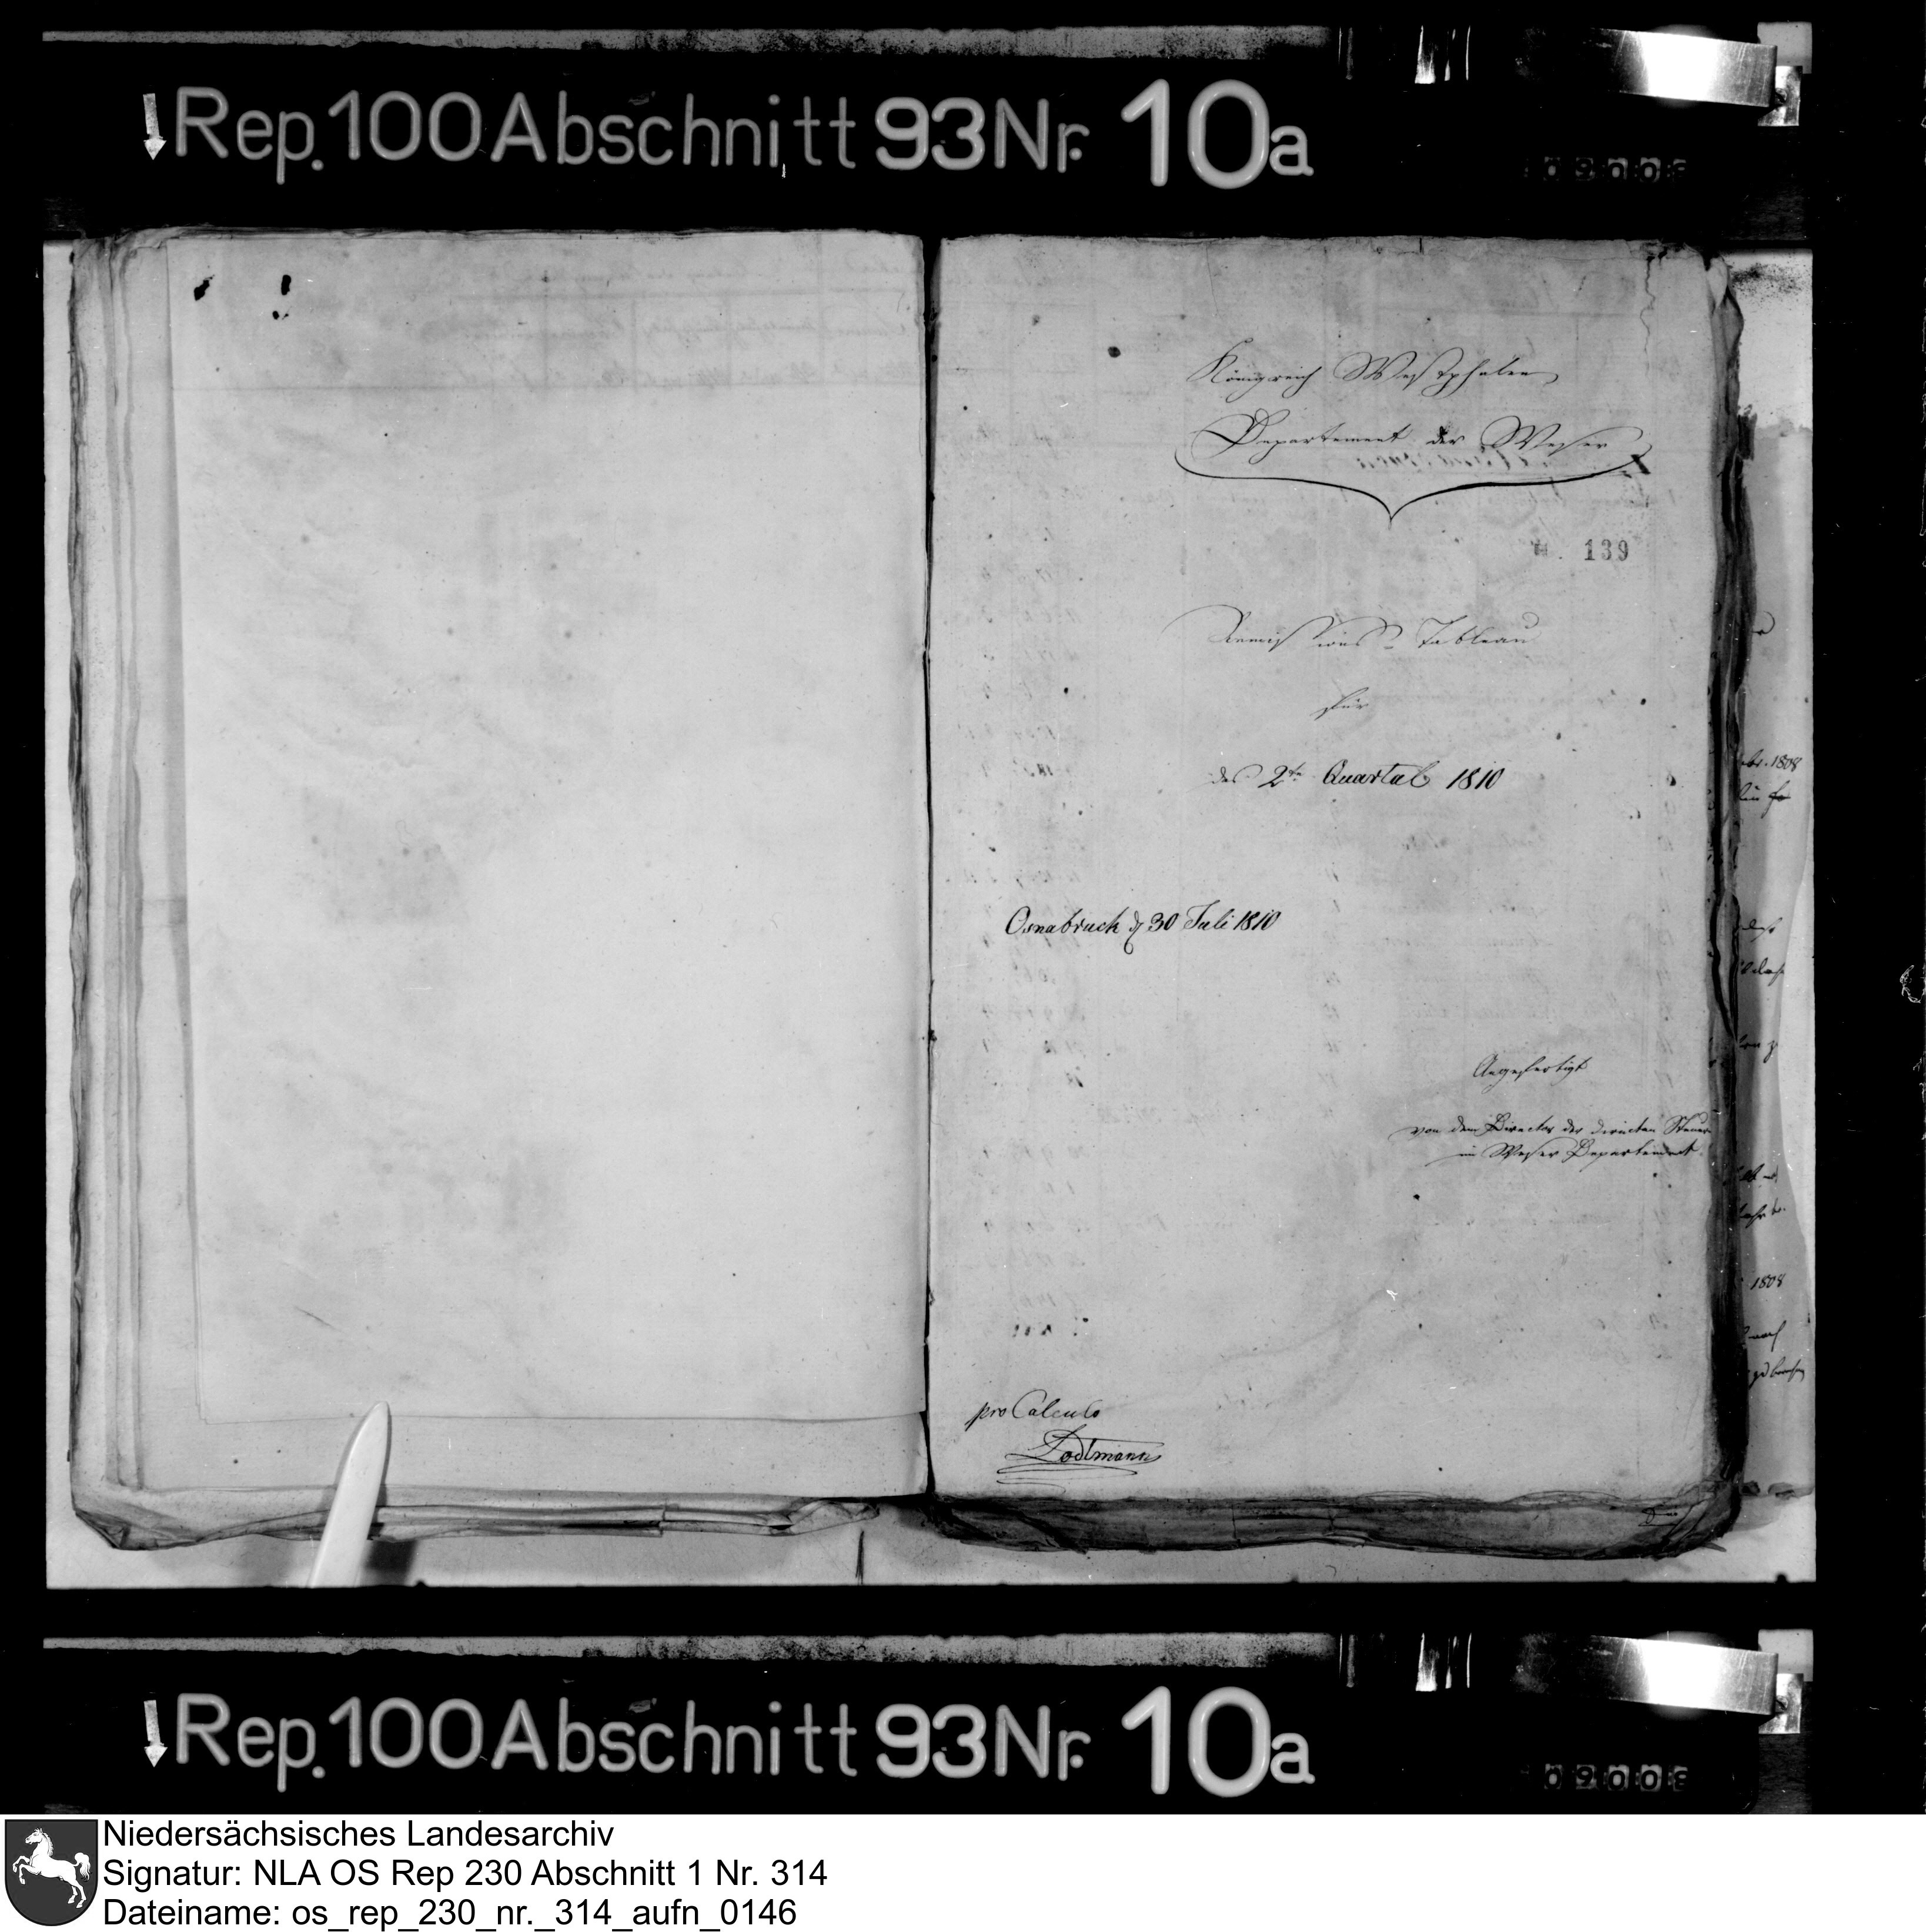 Rep. 100 Abschnitt 93 Nr. 10a
Königreich Westphalen
Departement der Weser
139
Remissions-Tableau
für
das 2te Quartal 1810
Osnabruck d 30 Juli 1810
Angefertigt
von dem Director der directen Steuer
im Weser Departement
pro Calculo
Lodtmann
1808
1808
Rep. 100 Abschnitt 93 Nr. 10a
Niedersächsisches Landesarchiv
Signatur: NLA OS Rep 230 Abschnitt 1 Nr. 314
Dateiname: os_rep_230_nr._314_aufn_0146